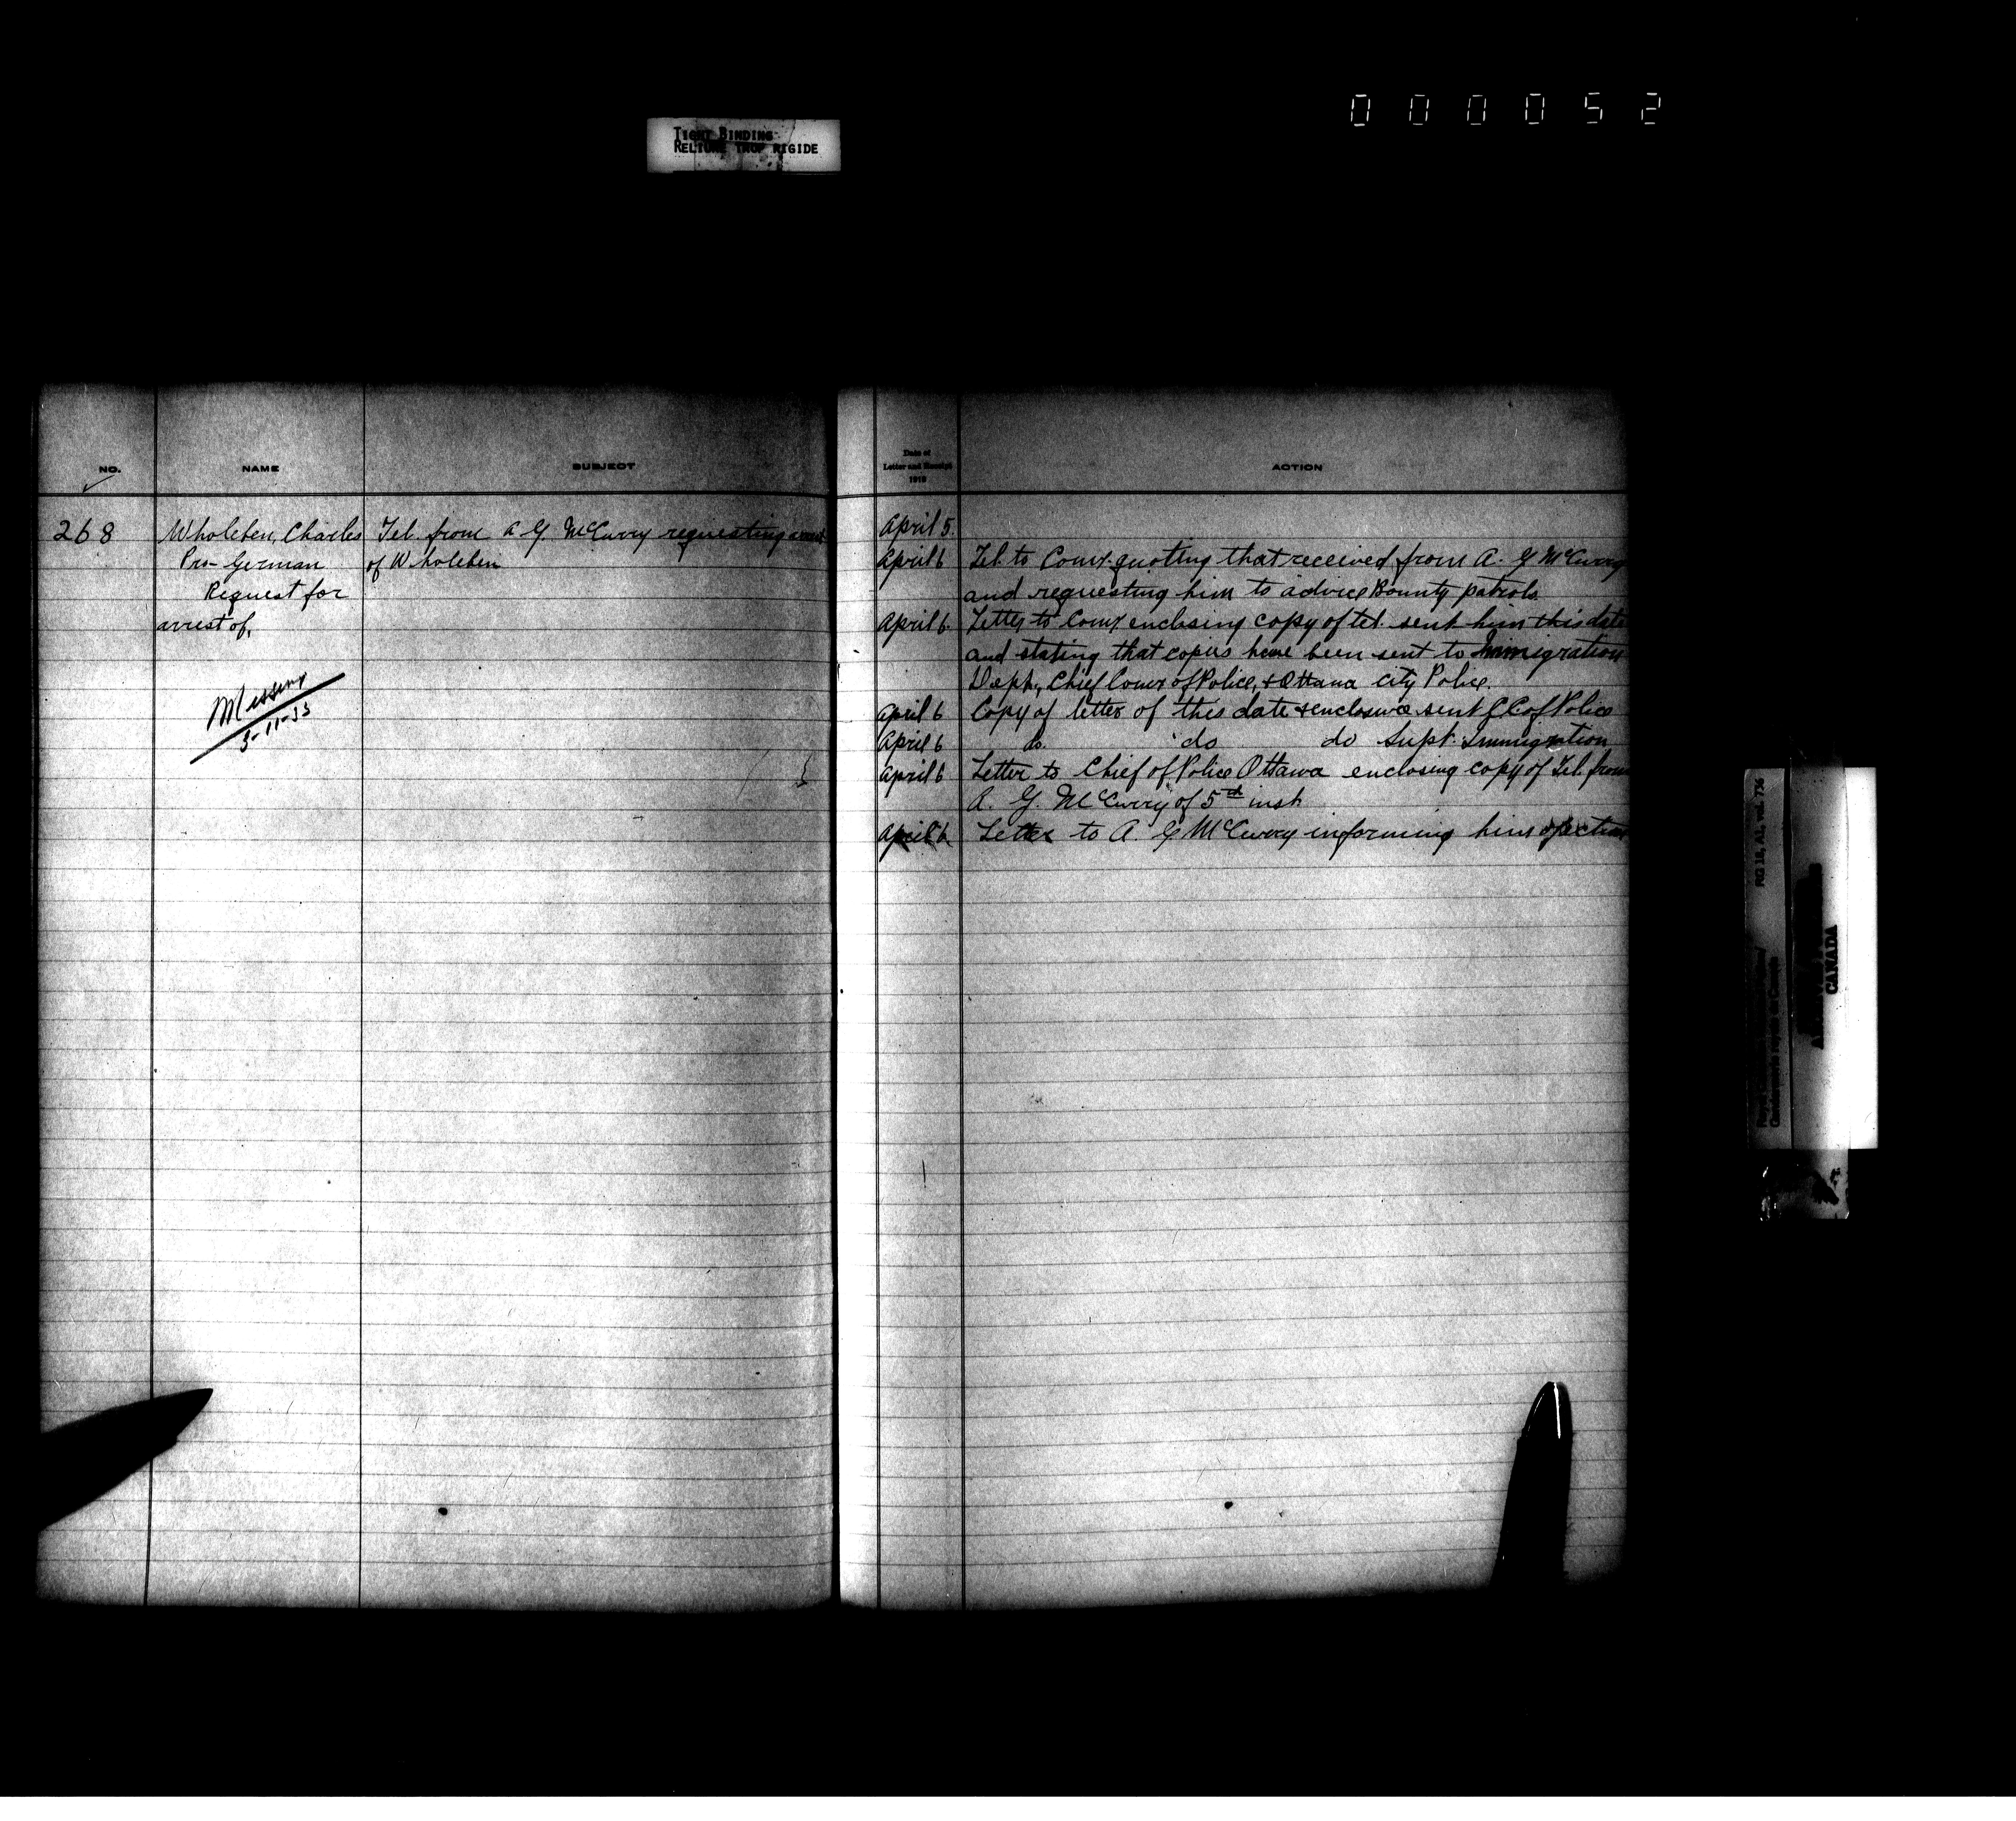 000052
TIGHT BINDING
RELIURE TROP RIGIDE
NO.
NAME
SUBJECT
268
Wholeben, Charles
Pro-German
Request for
arrest of.
Missing
3-11-33
Tel. from A G McCurry requesting arrest
of Wholeben
Date of
Letter and Receipt
1919
ACTION
April 5.
April 6 Tel. to Comr. quoting that received from A. G McCurry
and requesting him to advice Bounty patrols.
April 6. Letter to Comr enclosing copy of tel. sent him this date
and stating that copies have been sent to Immigration
Dept., Chief Comr of Police, & Ottawa city Police.
April 6 Copy of letter of this date & enclosure sent C.C of Police
April 6 do. do do Supt. Immigration
April 6 Letter to Chief of Police Ottawa enclosing copy of Tel. from
A. G. McCurry of 5th inst.
April 6 Letter to A. G McCurry informing him of action
RG 18, A1, vol. 736
CANADA